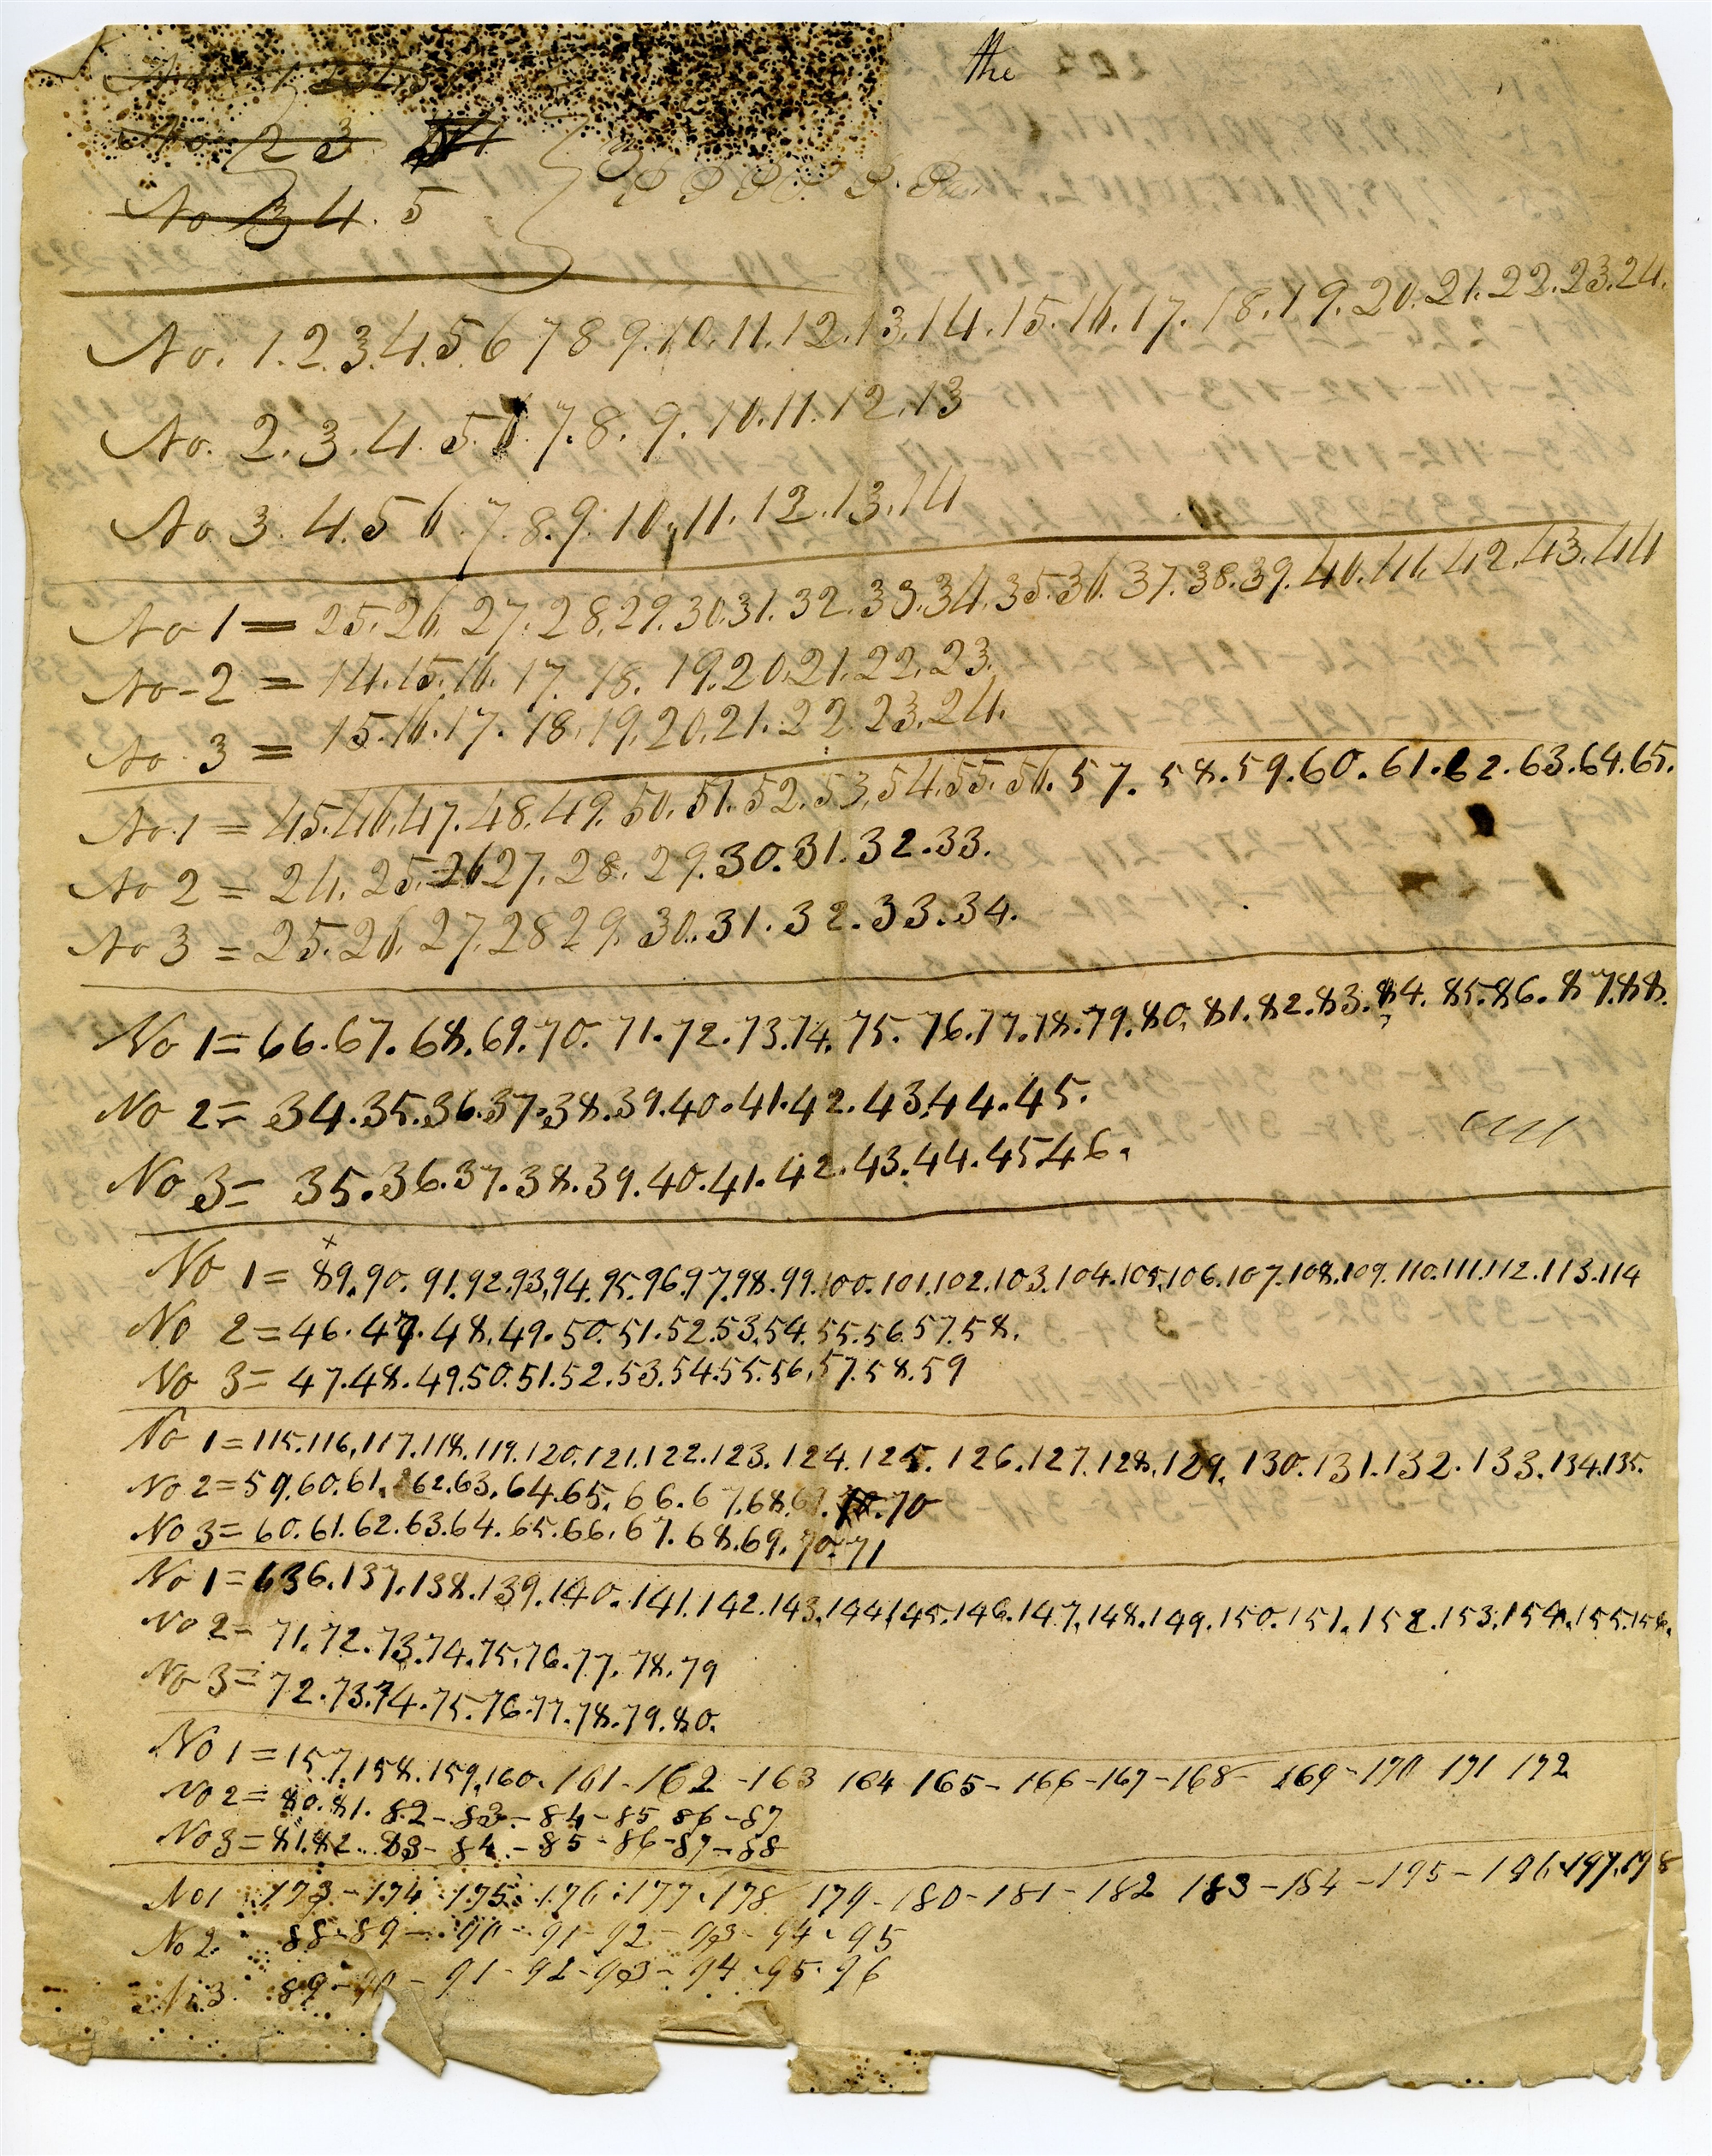 the
No 2 3
No 3 4. 5
No. 1.2.3.4.5 6 7 8 9.10.11.12.13.14.15.16.17.18.19.20.21.22.23.24.
No. 2.3.4.5.6.7.8.9.10.11.12.13
No 3.4.5 6.7.8.9.10.11.12.13.14
No 1 = 25.26.27.28.29.30.31.32.33.34.35.36.37.38.39.40.41.42.43.44
No - 2 = 14.15.16.17.18.19.20.21.22.23.
No. 3 = 15.16.17.18.19.20.21.22.23.24.
No. 1 = 45.46.47.48.49.50.51.52.53.54.55.56.57.58.59.60.61.62.63.64.65.
No 2 = 24.25.26 27.28.29.30.31.32.33.
No 3 = 25.26.27.28 29 30.31.32.33.34.
No 1 = 66.67.68.69.70.71.72.73.74.75.76.77.78.79.80.81.82.83.84.85.86.87.88.
No 2 = 34.35.36.37.38.39.40.41.42.43.44.45.
No 3 = 35.36.37.38.39.40.41.42.43.44.45.46.
x
No 1 = 89.90.91.92.93.94.95.96.97.98.99.100.101.102.103.104.105.106.107.108.109.110.111.112.113.114
No 2 = 46.47.48.49.50.51.52.53.54.55.56.57.58.
No 3 = 47.48.49.50.51.52.53.54.55.56.57.58.59
No 1 = 115.116.117.118.119.120.121.122.123.124.125.126.127.128.129.130.131.132.133.134.135.
No 2 = 59.60.61.62.63.64.65.66.67.68.69.70.70
No 3 = 60.61.62.63.64.65.66.67.68.69.70.71
No 1 = 636.137.138.139.140.141.142.143.144.145.146.147.148.149.150.151.152.153.154.155.156.
No 2 = 71.72.73.74.75.76.77.78.79
No 3 = 72.73.74.75.76.77.78.79.80.
No 1 = 157.158.159.160.161-162-163 164 165-166-167-168-169-170 171 172
No 2 = 80.81.82-83-84-85 86-87
No 3 = 81.82.83-84-85-86-87-88
No 1 173-174-175.176.177.178 179-180-181-182 183-184-195-196.197.198
No 2. 88-89-90-91-92-93-94-95
No 3. 89-90-91-92-93-94-95-96